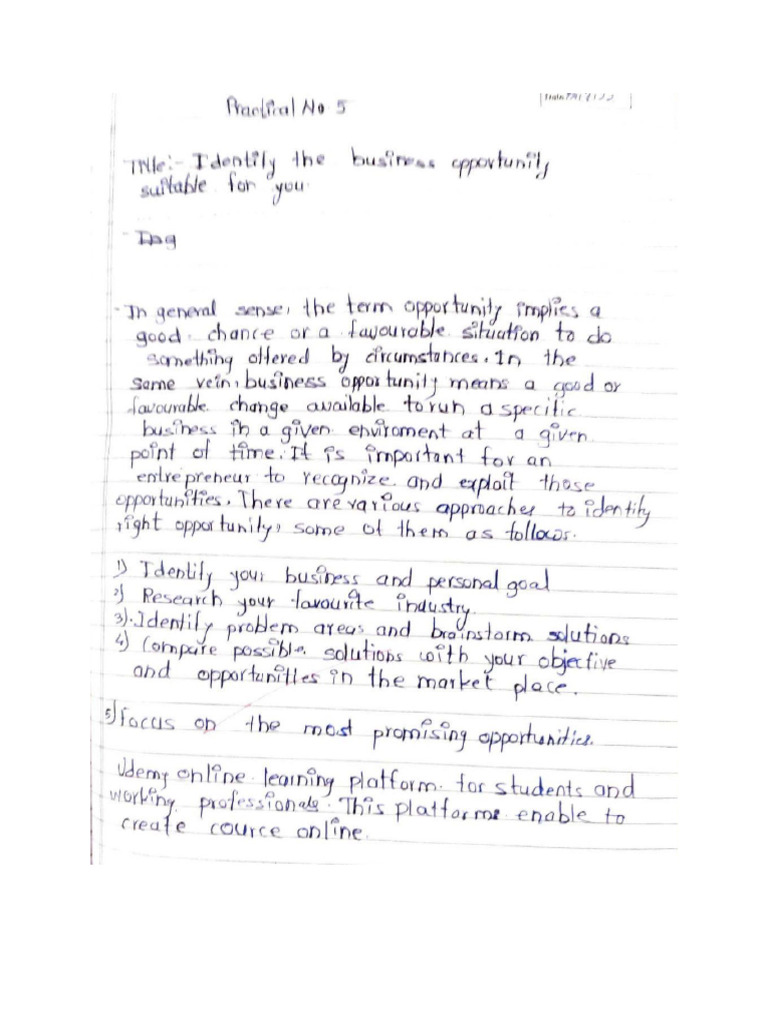 Practical No 5
Title:- Identify the business opportunity
suitable for you.
In general sense, the term opportunity implies a
good chance or a favourable situation to do
something offered by circumstances. In the
same vein, business opportunity means a good or
favourable change available to run a specific
business in a given enviroment at a given
point of time. It is important for an
entrepreneur to recognize and exploit those
opportunities. There are various approaches to identify
right opportunity, some of them as follows.
1) Identify your business and personal goal
2) Research your favourite industry.
3). Identify problem areas and brainstorm solutions
4) Compare possible solutions with your objective
and opportunities in the market place.
5) Focus on the most promising opportunities.
Udemy online learning platform for students and
working professionals. This platforms enable to
create cource online.